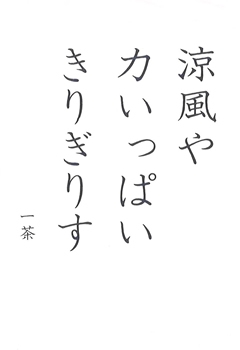 涼風や
力いっぱい
きりぎりす
一茶